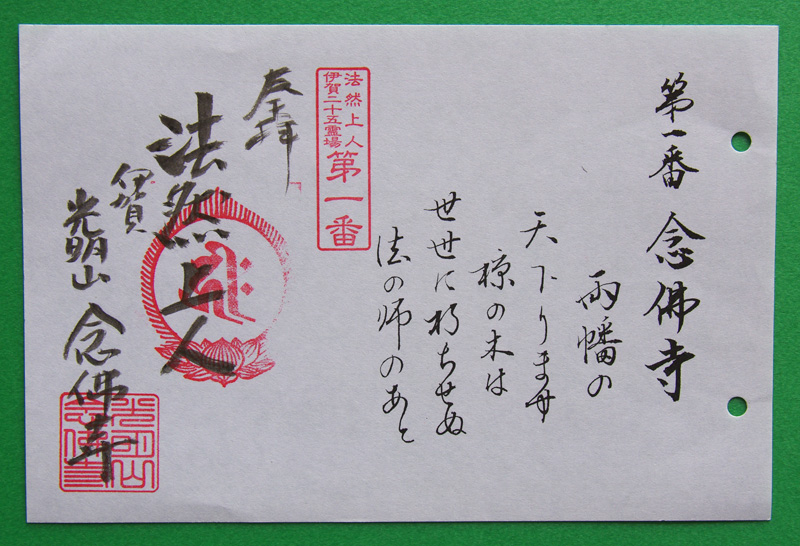 第一番 念佛寺
兩幡の
天下ります
椋の木は
世世に朽ちせぬ
法の師のあと
法然上人
伊賀二十五霊場
第一番
奉拝
法然上人
伊賀
光明山 念佛寺
光明山
念佛寺